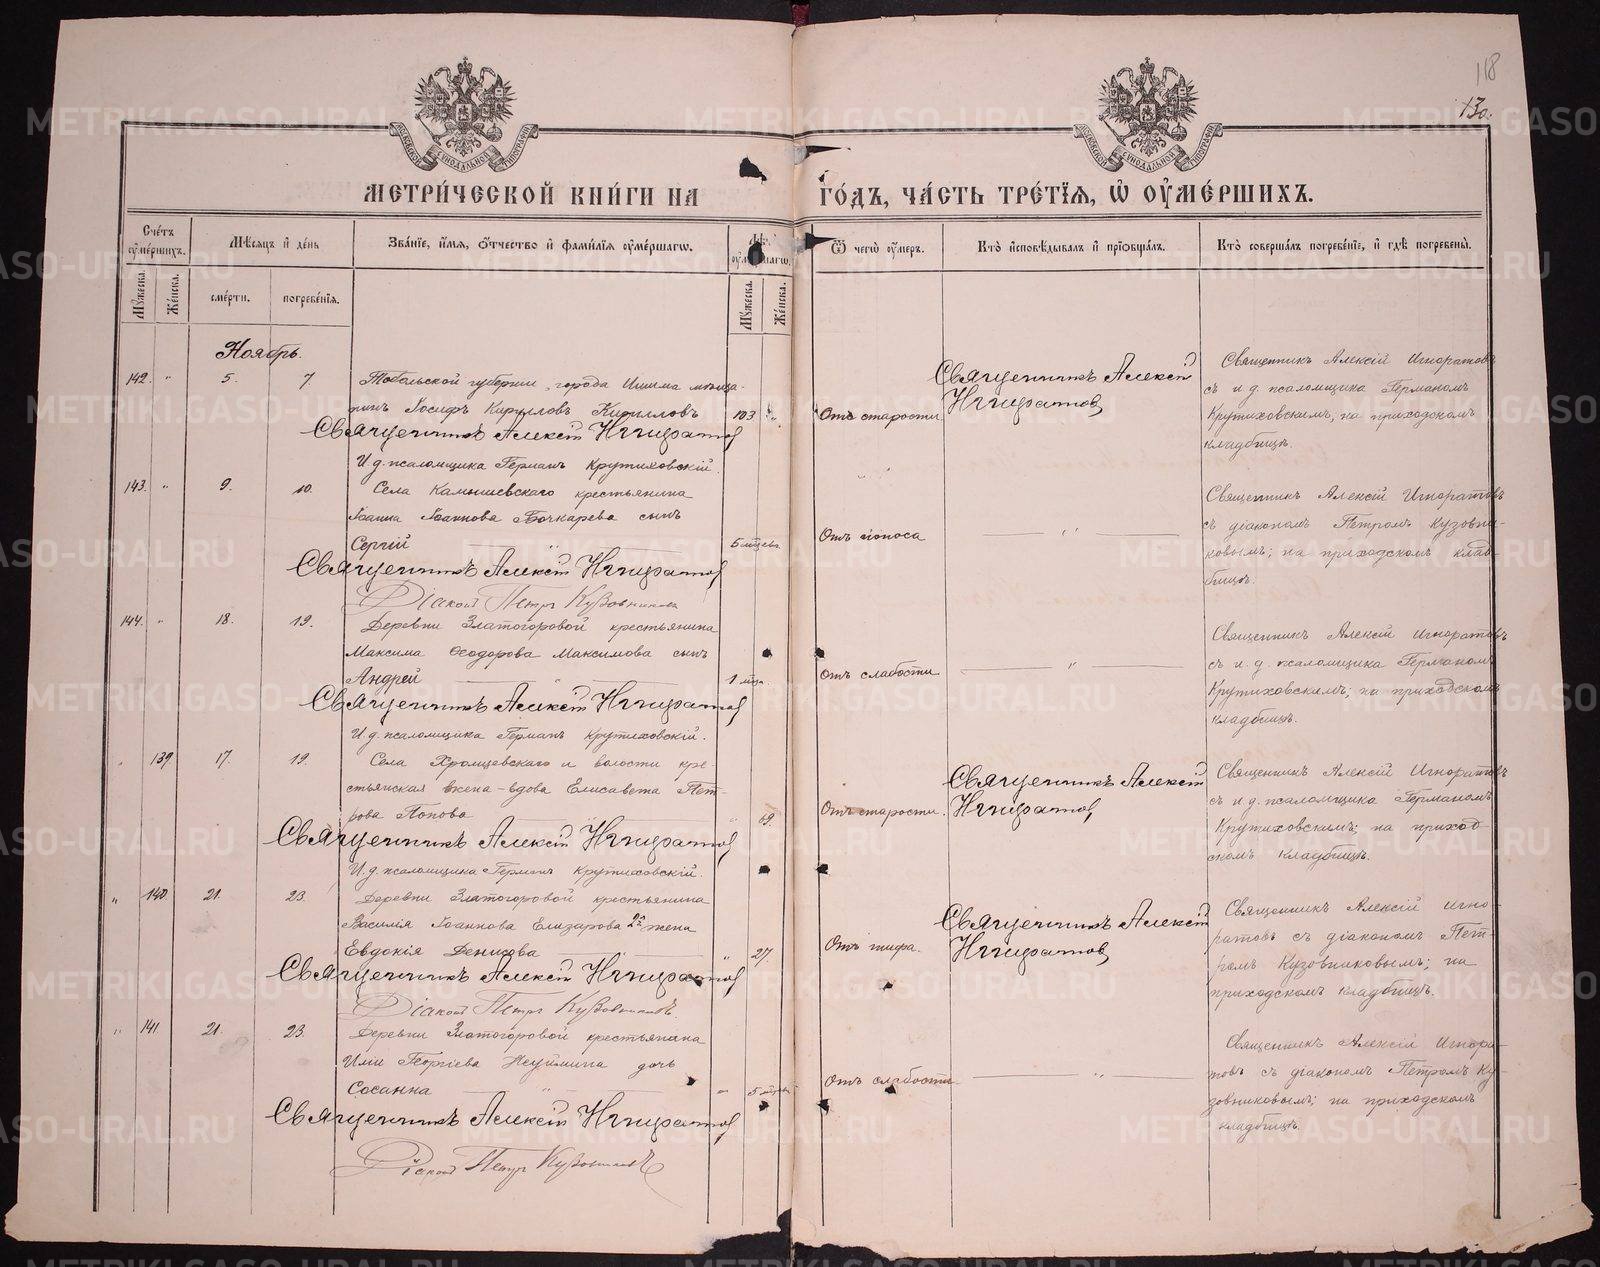 118
130.
МОСКОВСКОЙ СѴНОДАЛЬНОЙ ТИПОГРАФІИ
МОСКОВСКОЙ СѴНОДАЛЬНОЙ ТИПОГРАФІИ
МЕТРИ́ЧЕСКОЙ КНИ́ГИ НА ГО́ДЪ, ЧА́СТЬ ТРЕ́ТІѦ, Ѡ҆ ОУ҆МЕ́РШИХЪ.
Сче́тъ оу҆ме́ршихъ.
Мꙋ́жеска.
Же́нска.
Мѣ́сѧцъ и҆ де́нь
сме́рти.
погребе́нїѧ.
Зва́нїе, и҆́мѧ, ѻ҆́тчество и҆ фамѝлїѧ оу҆ме́ршагѡ.
Лѣ́та оу҆ме́ршагѡ.
Мꙋ́жеска.
Же́нска.
Ѿ чегѡ̀ оу҆́меръ.
Кто̀ и҆сповѣ́дывалъ и҆ прїѡбща́лъ.
Кто̀ соверша́лъ погребе́нїе, и҆ гдѣ̀ погребены̀.
Ноябрь.
142. " 5. 7. Тобольской губерніи, города Ишима мѣща-
нинъ Іосифъ Кирулловъ Кирилловъ 103 "
Священникъ Алексій Игноратовъ
И.д. псаломщика Германъ Крутиховскій.
Отъ старости.
Священникъ Алексій
Игноратовъ
Священникъ Алексій Игноратовъ
съ и.д. псаломщика Германомъ
Крутиховскимъ, на приходскомъ
кладбищѣ.
143. " 9. 10. Села Камышевскаго крестьянина
Іоанна Іоаннова Бочкарева сынъ
Сергій 5 мѣсяц.
Священникъ Алексій Игноратовъ
Діаконъ Петръ Кузовниковъ
Отъ поноса
"
Священникъ Алексій Игноратовъ
съ діакономъ Петромъ Кузовни-
ковымъ; на приходскомъ клад-
бищѣ.
144. " 18. 19. Деревни Златогоровой крестьянина
Максима Ѳеодорова Максимова сынъ
Андрей 1 мѣс.
Священникъ Алексій Игноратовъ
И.д. псаломщика Германъ Крутиховскій.
Отъ слабости
"
Священникъ Алексій Игноратовъ
съ и.д. псаломщика Германомъ
Крутиховскимъ; на приходскомъ
кладбищѣ.
" 139. 17. 19. Села Хромцевскаго и волости кре-
стьянская жена-вдова Елисавета Пет-
рова Попова 69.
Священникъ Алексій Игноратовъ
И.д. псаломщика Германъ Крутиховскій.
Отъ старости.
Священникъ Алексій
Игноратовъ
Священникъ Алексій Игноратовъ
съ и.д. псаломщика Германомъ
Крутиховскимъ; на приход-
скомъ кладбищѣ.
" 140. 21. 23. Деревни Златогоровой крестьянина
Василія Іоаннова Елизарова 2я жена
Евдокія Денисова " 27.
Священникъ Алексій Игноратовъ
Діаконъ Петръ Кузовниковъ.
Отъ тифа.
Священникъ Алексій
Игноратовъ
Священникъ Алексій Игно-
ратовъ съ діакономъ Пет-
ромъ Кузовниковымъ; на
приходскомъ кладбищѣ.
" 141 21. 23. Деревни Златогоровой крестьянина
Или Георгіева Неуймина дочь
Сосанна " 5
Священникъ Алексій Игноратовъ
Діаконъ Петръ Кузовниковъ
Отъ слабости
"
Священникъ Алексій Игнора-
товъ съ діакономъ Петромъ Ку-
зовниковымъ; на приходскомъ
кладбищѣ.
METRIKI.GASO-URAL.RU